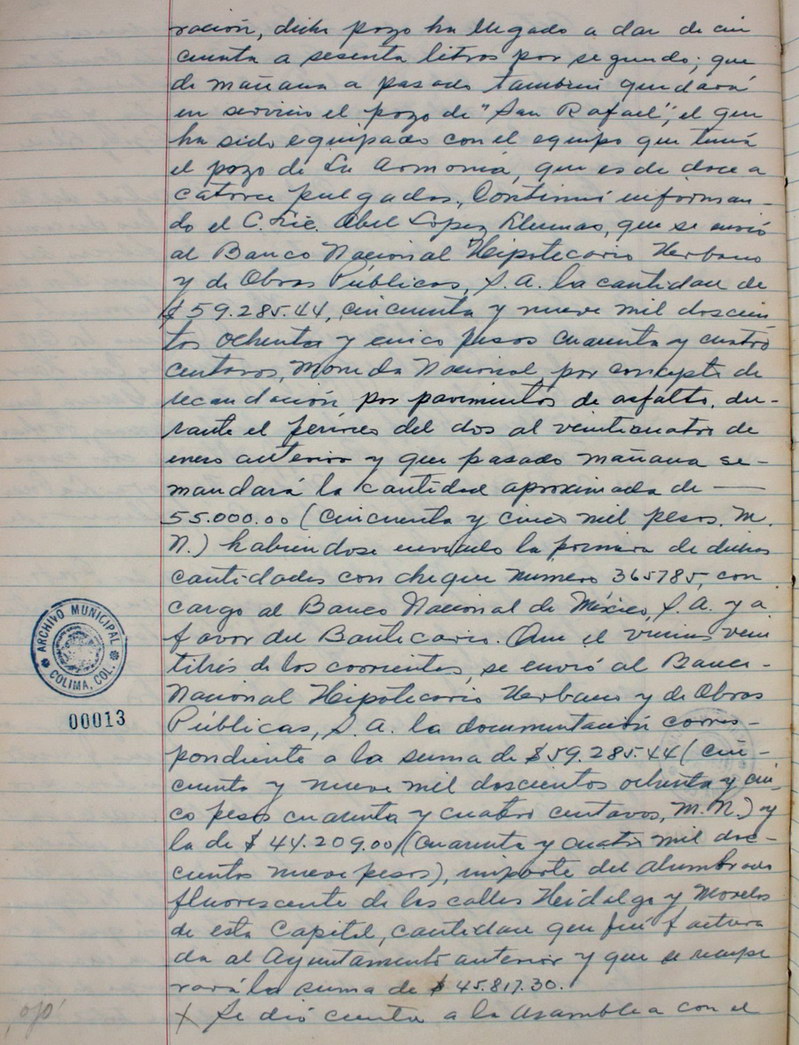 ración, dicho pozo ha llegado a dar de cin
cuenta a sesenta litros por segundo; que
de mañana a pasado también quedará
en servicio el pozo de "San Rafael", el que
ha sido equipado con el equipo que tenía
el pozo de La Armonía, que es de doce a
catorce pulgadas, Continuó informan-
do el C. Lic. Abel López Llerenas, que se envió
al Banco Nacional Hipotecario Urbano
y de Obras Públicas, S. A. la cantidad de
$59.285.44, cincuenta y nueve mil doscien
tos ochenta y cinco pesos cuarenta y cuatro
centavos, Moneda Nacional, por concepto de
recaudación por pavimentos de asfalto, du-
rante el período del dos al veinticuatro de
enero anterior y que pasado mañana se-
mandará la cantidad aproximada de —
55.000.00 (cincuenta y cinco mil pesos. M.
N.) habiéndose enviado la primera de dichas
cantidades con cheque número 365785, con
cargo al Banco Nacional de México, S. A. y a
favor del Bantecario. Que el viernes vein
titrés de los corrientes, se envió al Banco-
Nacional Hipotecario Urbano y de Obras
Públicas, S. A. la documentación corres-
pondiente a la suma de $59.285.44 (cin-
cuenta y nueve mil doscientos ochenta y cin
co pesos cuarenta y cuatro centavos, M.N.) y
la de $44.209.00 (cuarenta y cuatro mil dos-
cientos nueve pesos), importe del alumbrado
fluorescente de las calles Hidalgo y Morelos
de esta Capital, cantidad que fué factura
da al Ayuntamiento anterior y que se recupe
rará la suma de $45.817.30.
X Se dió cuenta a la Asamblea con el
ARCHIVO MUNICIPAL
COLIMA, COL.
00013
"ojo"